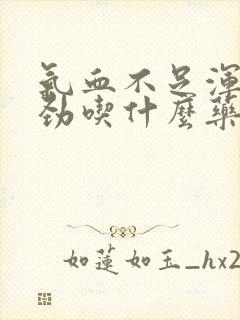 氣血不足渾
勁喫什麼藥
如蓮如玉_hx2